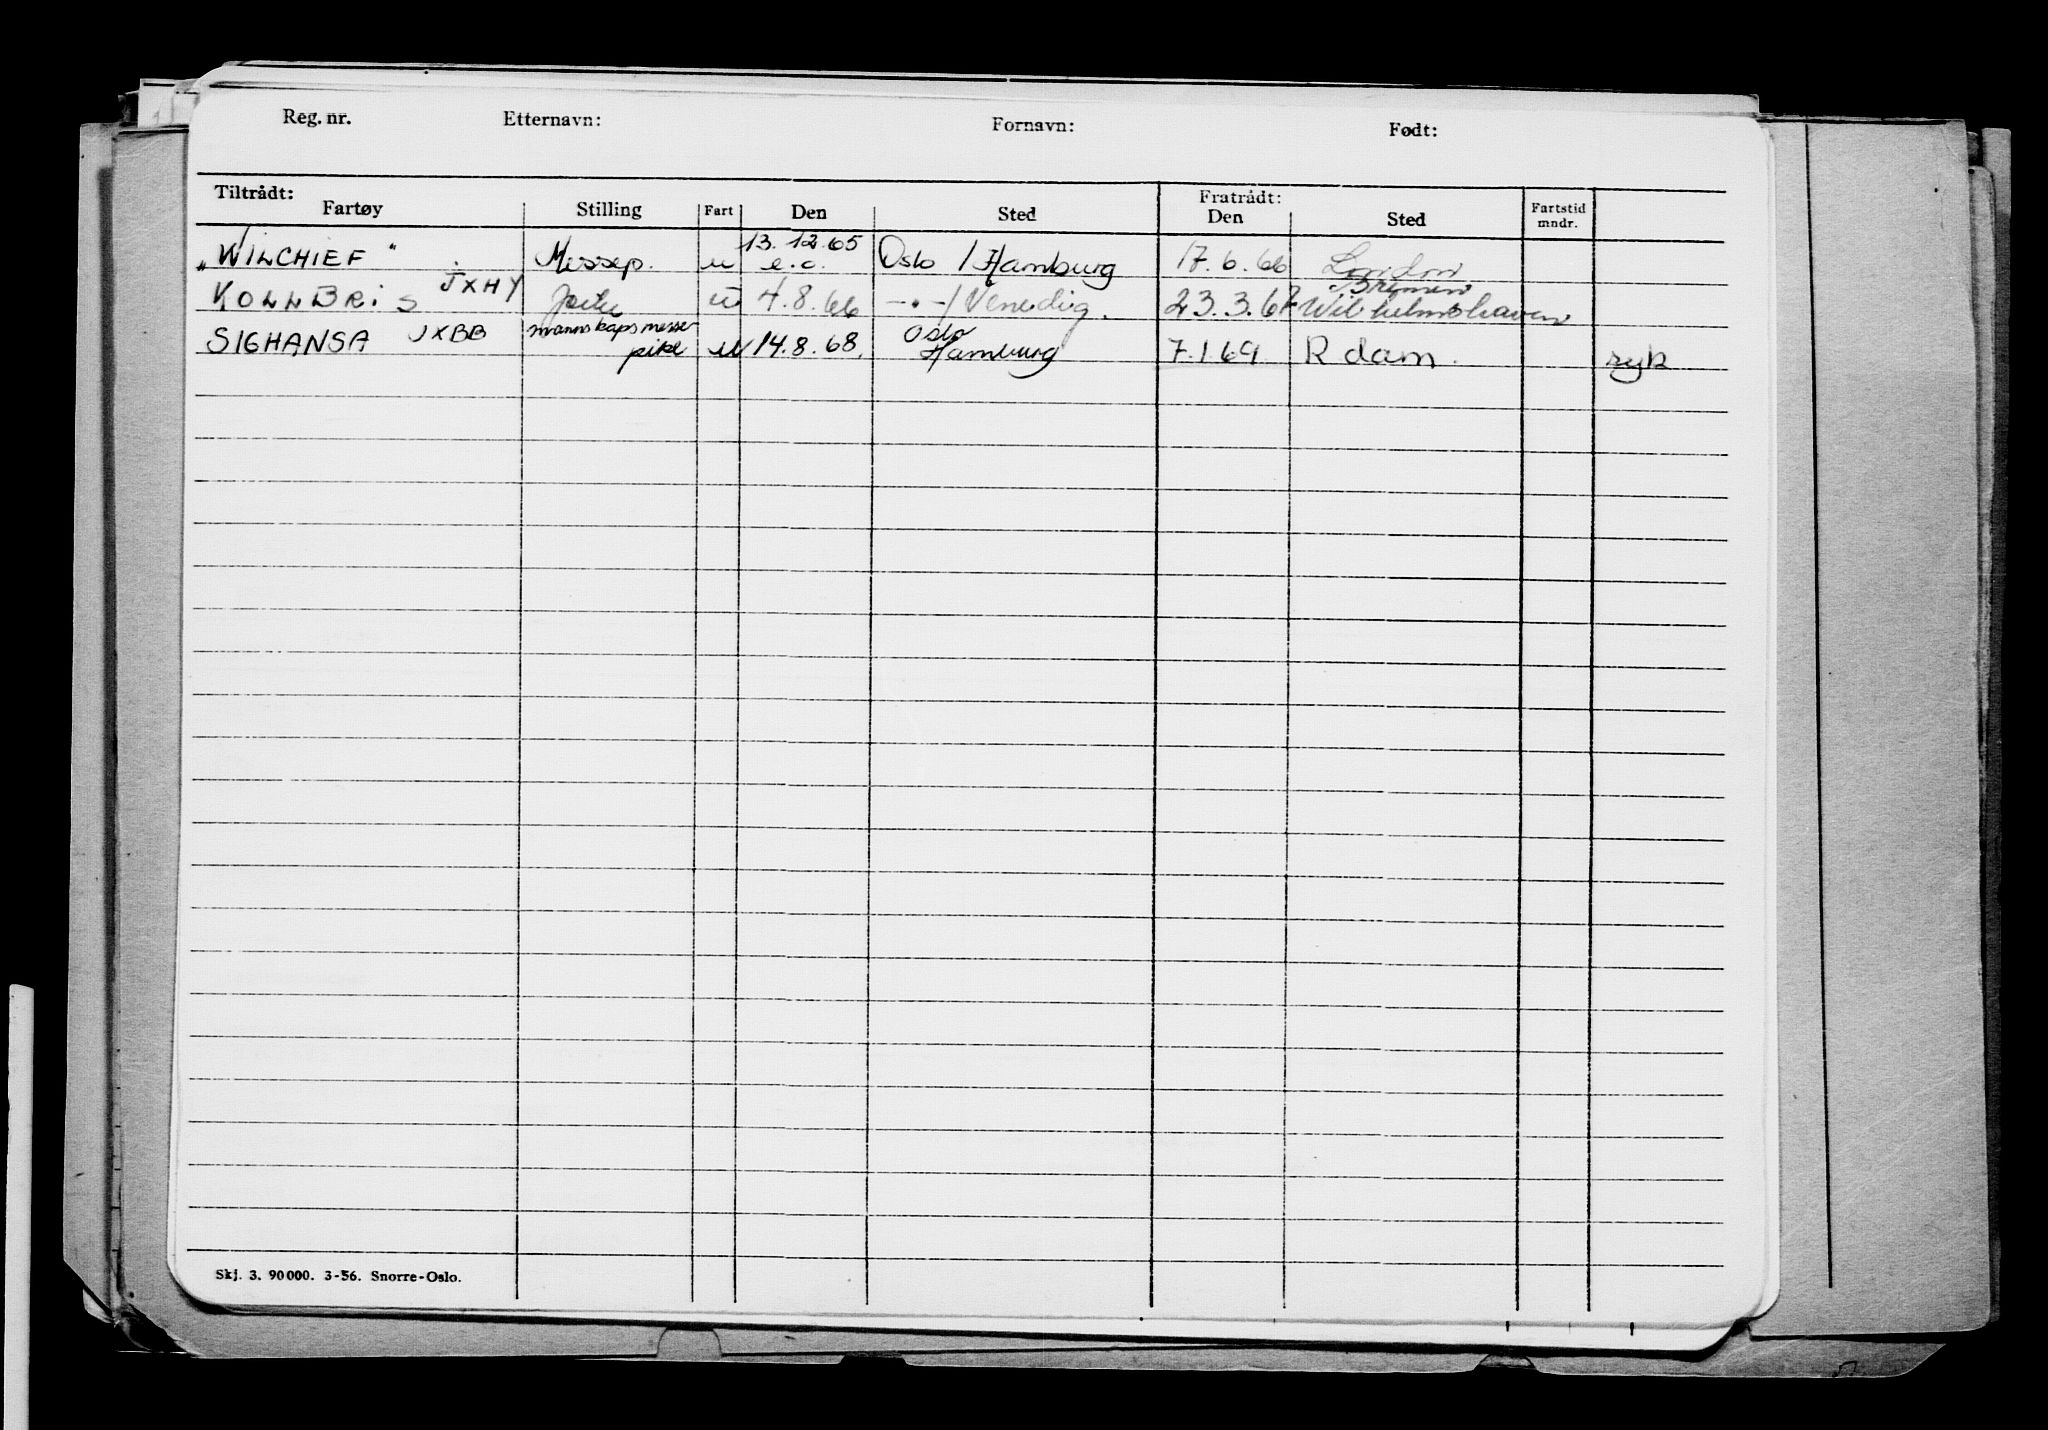 Reg. nr. Etternavn: Fornavn: Født:
Tiltrådt: Fratrådt:
Fartøy Stilling Fart Den Sted Den Sted Fartstid mndr.
„WILCHIEF" Messep. u 13.12.65 e.o. Oslo / Hamburg 17.6.66 London
KOLLBRIS JXHY u 4.8.66 —•—/ Venedig. 23.3.67 Bremen Wilhelmshaven
SIGHANSA JXBB mannskapsmesse pike u 14.8.68. Oslo Hamburg 7.1.69 R dam. syk
Skj. 3. 90000. 3-56. Snorre-Oslo.